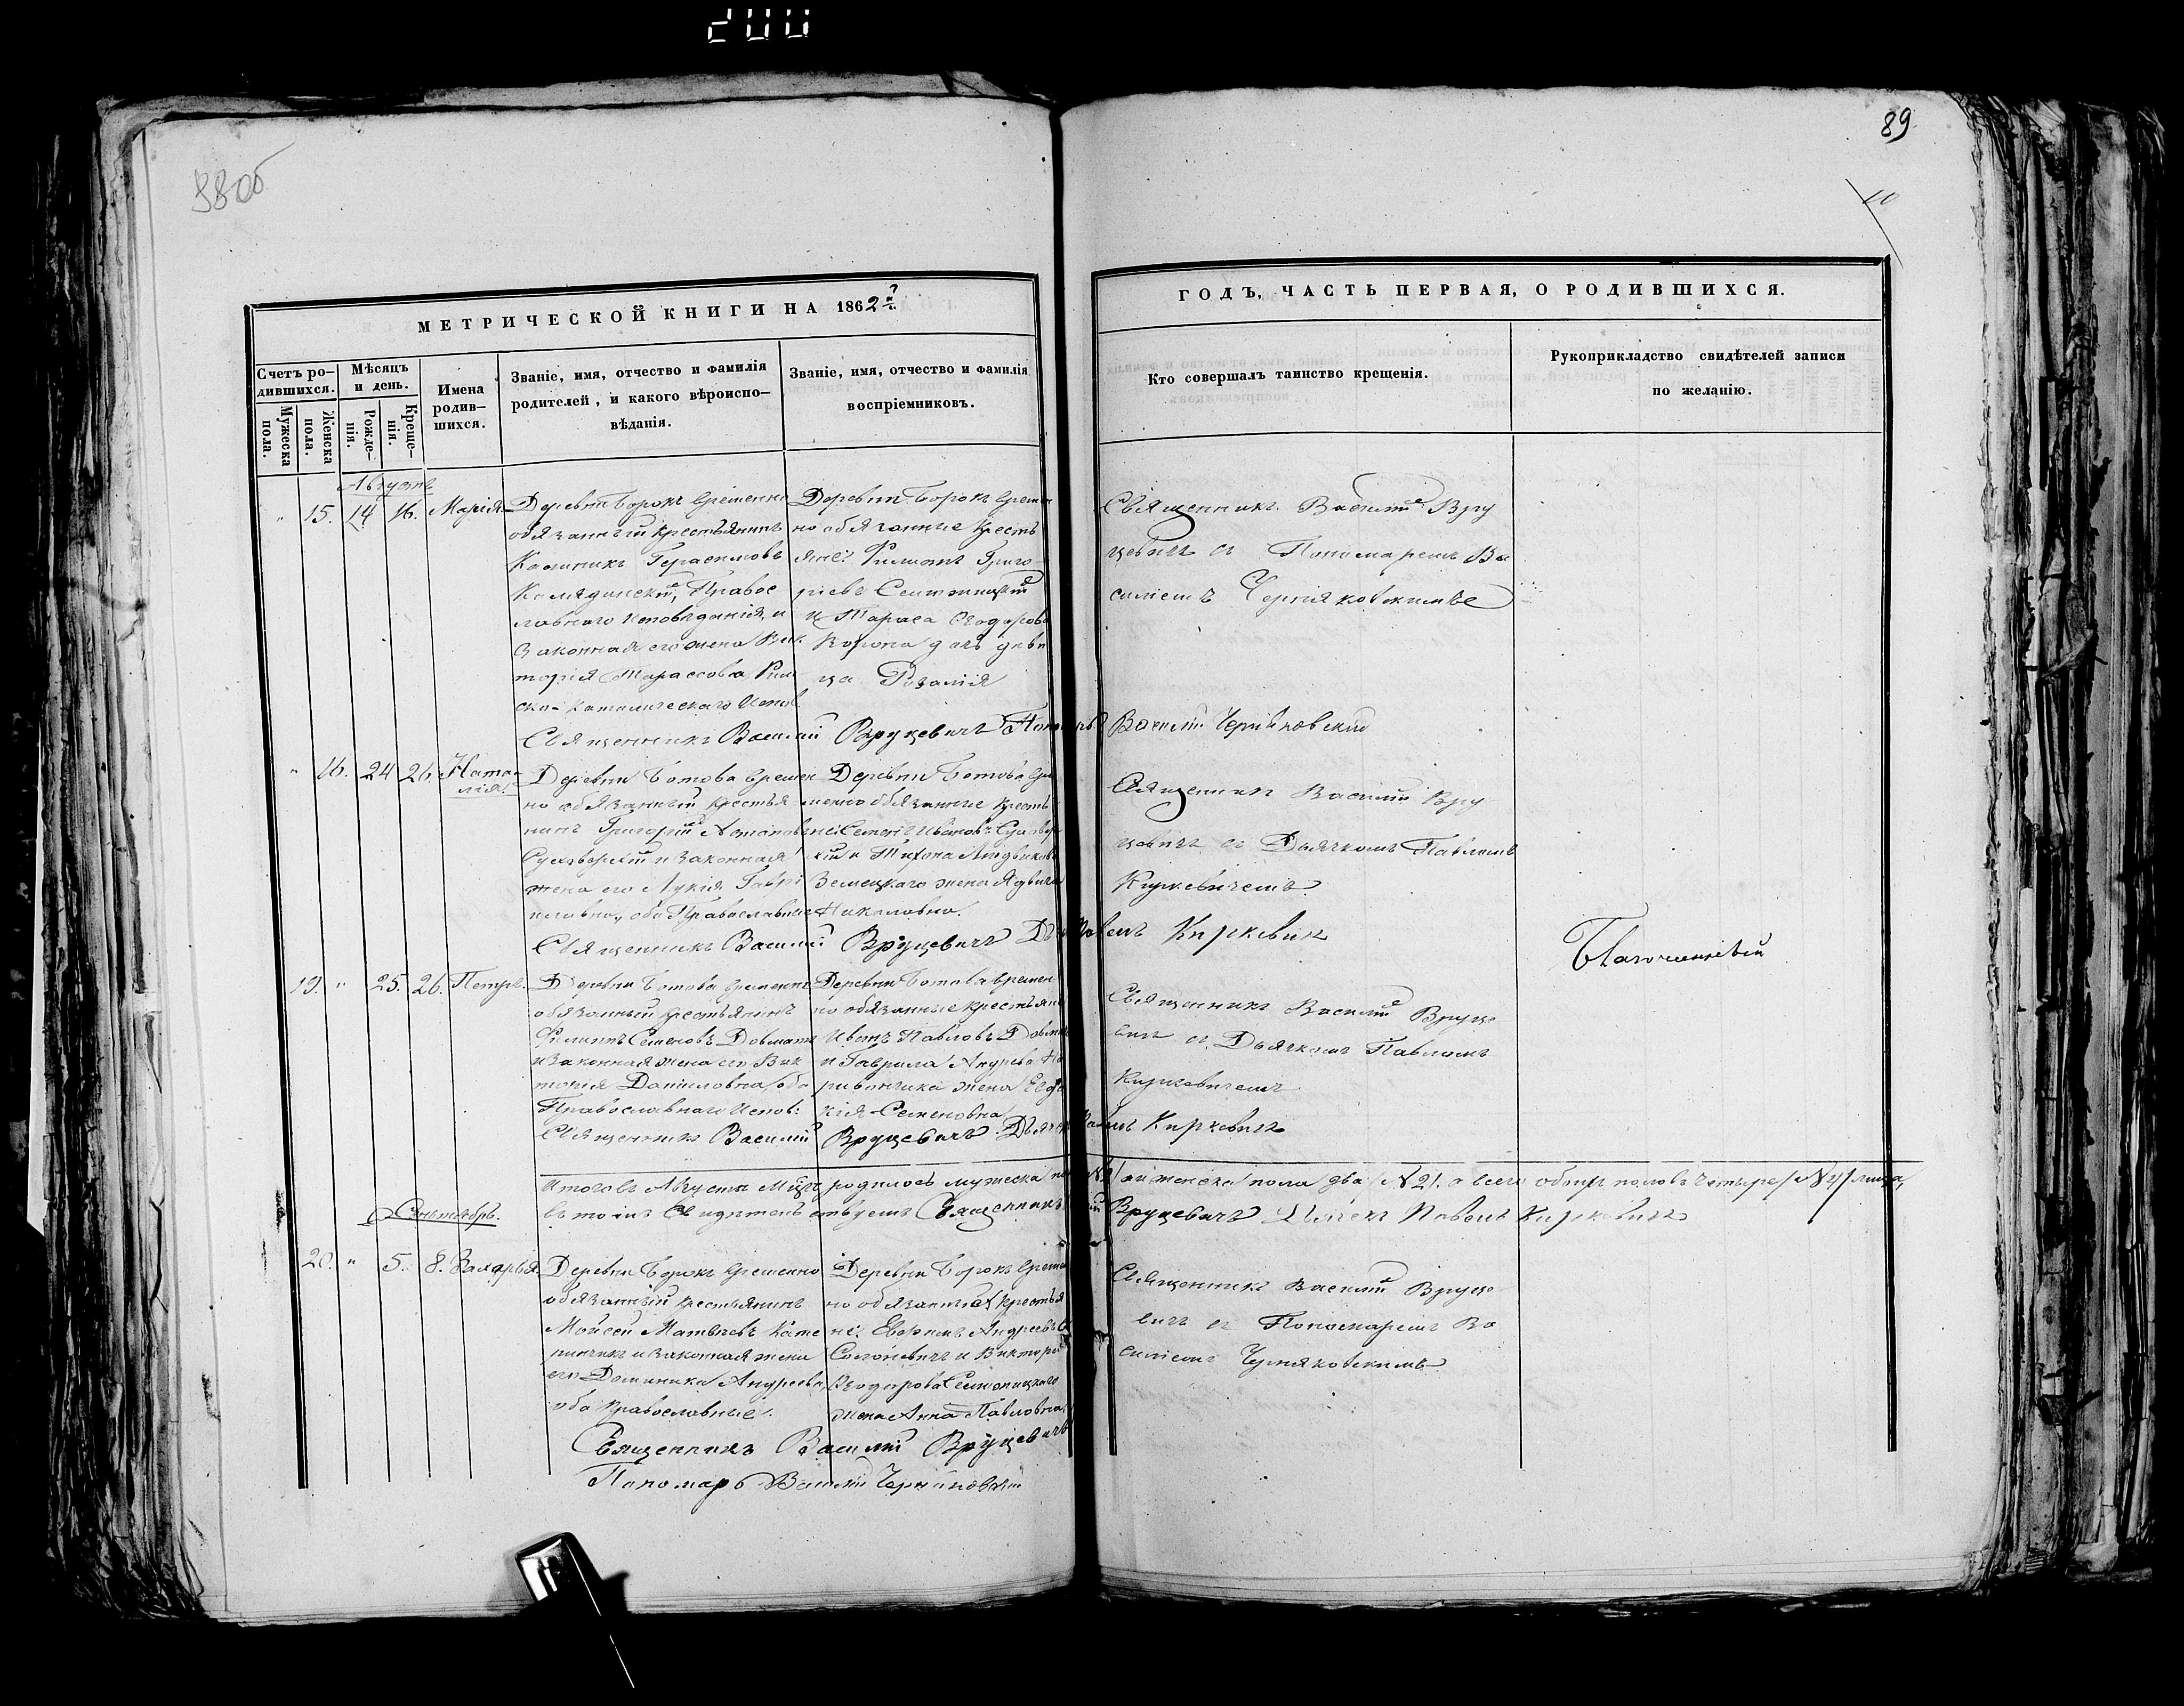 200
88об
89
10
МЕТРИЧЕСКОЙ КНИГИ НА 1862й
ГОДЪ, ЧАСТЬ ПЕРВАЯ, О РОДИВШИХСЯ.
Счетъ ро-
дившихся.
Мужеска
пола.
Женска
пола.
Мѣсяцъ
и день.
Рожде-
нія.
Креще-
нія.
Имена
родив-
шихся.
Званіе, имя, отчество и фамилія
родителей, и какого вѣроиспо-
вѣданія.
Званіе, имя, отчество и фамилія
воспріемниковъ.
Кто совершалъ таинство крещенія.
Рукоприкладство свидѣтелей записи
по желанію.
Августъ
" 15. 14 16. Марія
Деревни Борокъ временно
обязанный крестьянинъ
Калиникъ Герасимовъ
Правос
лавнаго исповѣданія, и
законная его жена Вик
торія Тарассова Рим
ско-католическаго испов.
Деревни Борокъ времен
но обязанные кресть
яне: Филипъ Григо
ріевъ
и Тараса Ѳеодорова
дочь дѣви
ца Розалія
Священникъ Василій Вру
цевичъ съ Пономаремъ Ва
силіемъ Черняковскимъ
Священникъ Василій Вруцевичъ Пономарь Василій Черняковскій
" 16. 24 26. Ната-
лія.
Деревни Ботова времен
но обязанный крестья
нинъ Григорій
Суховерхій и законная
жена его Лукія Гаври
иловна, оба Православные
Деревни Ботова вре
менно обязанные кресть
яне: Семенъ Ивановъ Суховер
хій и Тихона
Земецкаго жена Ядвига
Николовна.
Священникъ Василій Вру
цевичъ съ Дьячкомъ Павломъ
Киркевичемъ
Священникъ Василій Вруцевичъ Павелъ Киркевичъ
19. " 25. 26. Петръ.
Деревни Ботова временно
обязанный крестьянинъ
Филипъ Семеновъ Довматъ
и законная жена его Вик
торія Даниловна, оба
Православнаго испов:
Деревни Ботова времен
но обязанные крестьяне
Иванъ Павловъ Довматъ
и Гаврила Андреева
жена Евдо
кія Семеновна
Священникъ Василій Вруце
вичъ съ Дьячкомъ Павломъ
Киркевичемъ
Священникъ Василій Вруцевичъ Дьячекъ Павелъ Киркевичъ
Итого въ Августѣ Мцѣ родилось мужеска женска пола два /№2/. а всего обоихъ половъ четыре /№4/ лица,
въ томъ свидѣтельствуемъ Священникъ Вруцевичъ Дьячекъ Павелъ Киркевичъ
Сентябрь.
20. " 5. 8. Захарья
Деревни Борокъ временно
обязанный крестьянинъ
Мойсей Матвѣевъ Кате
ринчикъ и законная жена
его Доминика Андреева,
оба православные.
Деревни Борокъ времен
но обязанные крестья
не: Андреевъ
и Викторъ
Ѳеодорова
жена Анна Павловна
Священникъ Василій Вруце
вичъ съ Пономаремъ Ва
силіемъ Черняковскимъ
Священникъ Василій Вруцевичъ
Пономарь Василій Черняковскій